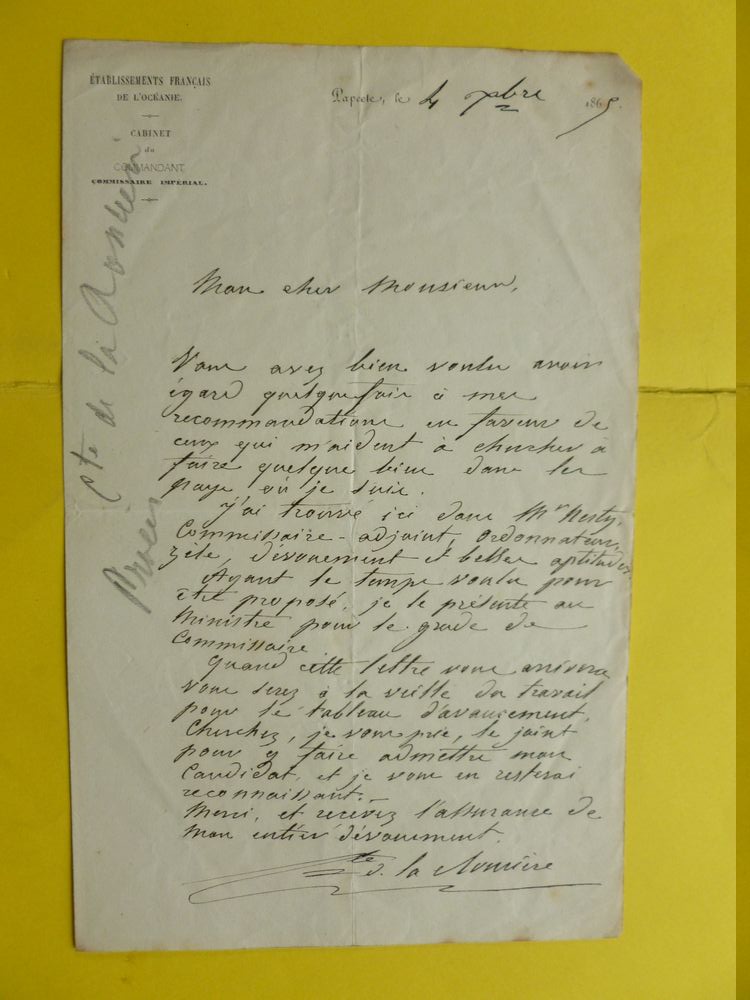 ÉTABLISSEMENTS FRANÇAIS
DE L'OCÉANIE.
CABINET
du
COMMANDANT
COMMISSAIRE IMPÉRIAL.
Papeete, le 4 7bre 1865.
Mon cher Monsieur,
Vous avez bien voulu avoir
égard quelquefois à mes
recommandations en faveur de
ceux qui m'aident à chercher à
faire quelque bien dans les
pays où je suis.
J'ai trouvé ici dans Mr
Commissaire-adjoint, ordonnateur,
zèle, dévouement et belles aptitudes
Ayant le temps voulu pour
être proposé, je le présente au
Ministre pour le grade de
Commissaire.
Quand cette lettre vous arrivera
vous serez à la veille du travail
pour le tableau d'avancement.
Cherchez, je vous prie, le joint
pour y faire admettre mon
Candidat, et je vous en resterai
reconnaissant.
Merci, et recevez l'assurance de
mon entier dévouement.
Cte de la Roncière
Cte de la Roncière